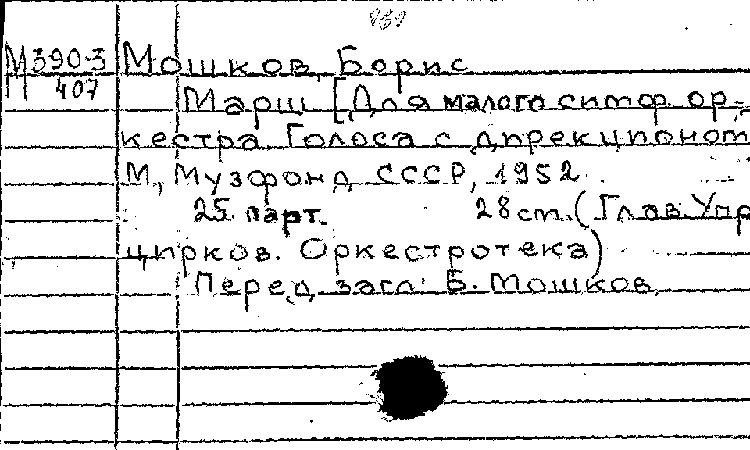 939
М390-3 Мошков, Борис
407
Марш [Для малого симф. ор-
кестра. Голоса с дирекционом
М, Музфонд СССР, 1952
25 парт. 28 см. (Глав. Упр
цирков. Оркестротека)
Перед загл: Б. Мошков